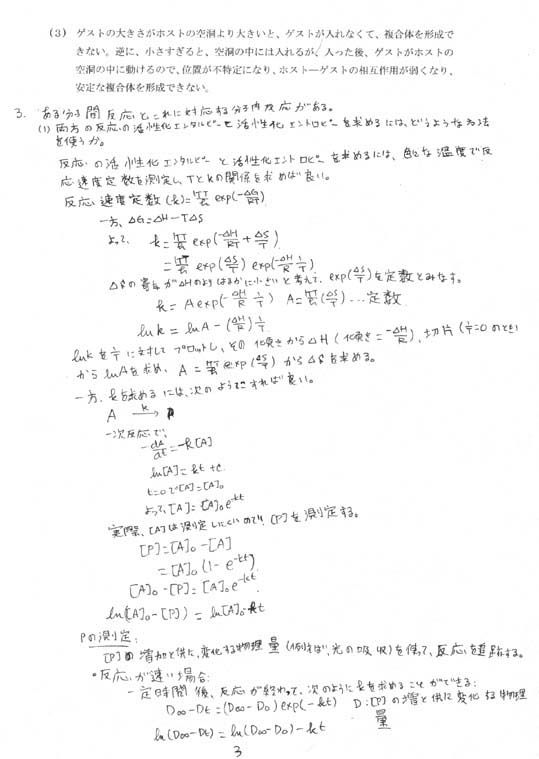 (3) ゲストの大きさがホストの空洞より大きいと、ゲストが入れなくて、複合体を形成で
きない。逆に、小さすぎると、空洞の中には入れるが、入った後、ゲストがホストの
空洞の中に動けるので、位置が不特定になり、ホスト―ゲストの相互作用が弱くなり、
安定な複合体を形成できない。
3. ある分子間反応と、これに対応する分子内反応がある。
(1) 両方の反応の活性化エンタルピーと活性化エントロピーを求めるには、どうような方法
を使うか。
反応の活性化エンタルピーと活性化エントロピーを求めるには、色々な温度で反
応速度定数を測定し、Tとkの関係を求めば良い。
反応速度定数(k)= exp(-ΔG/RT)
一方、ΔG=ΔH-TΔS
よって、 k= exp(-ΔH/RT + ΔS/T)
= exp(ΔS/T) exp(-ΔH/R 1/T)
ΔSの寄与がΔHのよりはるかに小さいと考えて、exp(ΔS/T)を定数とみなす。
k = A exp(-ΔH/R 1/T) A= (ΔS/T) … 定数
lnk = lnA - (ΔH/R) 1/T
lnkを1/Tに対してプロットし、その傾きからΔH (傾き = -ΔH/R)、切片 (1/T=0のとき)
からlnAを求め、A = exp(ΔS/T) からΔSを求める。
一方、kを求めるには、次のようにすれば良い。
A k→ P
一次反応で、
-dA/dt = -k[A]
ln[A] = kt + c
t=0で[A]=[A]₀
よって、[A] = [A]₀e^-kt
実際、[A]は測定しにくいので、[P]を測定する。
[P]=[A]₀-[A]
=[A]₀(1-e^-kt)
[A]₀-[P]=[A]₀e^-kt
ln([A]₀-[P]) = ln[A]₀-kt
Pの測定:
[P]の増加と供に、変化する物理量(例えば、光の吸収)を使って、反応を追跡する。
・反応が速い場合:
一定時間後、反応が終わって、次のようにkを求めることができる:
D∞-Dt=(D∞-D₀)exp(-kt) D:[P]の増と供に変化する物理
量
ln(D∞-Dt)=ln(D∞-D₀)-kt
3